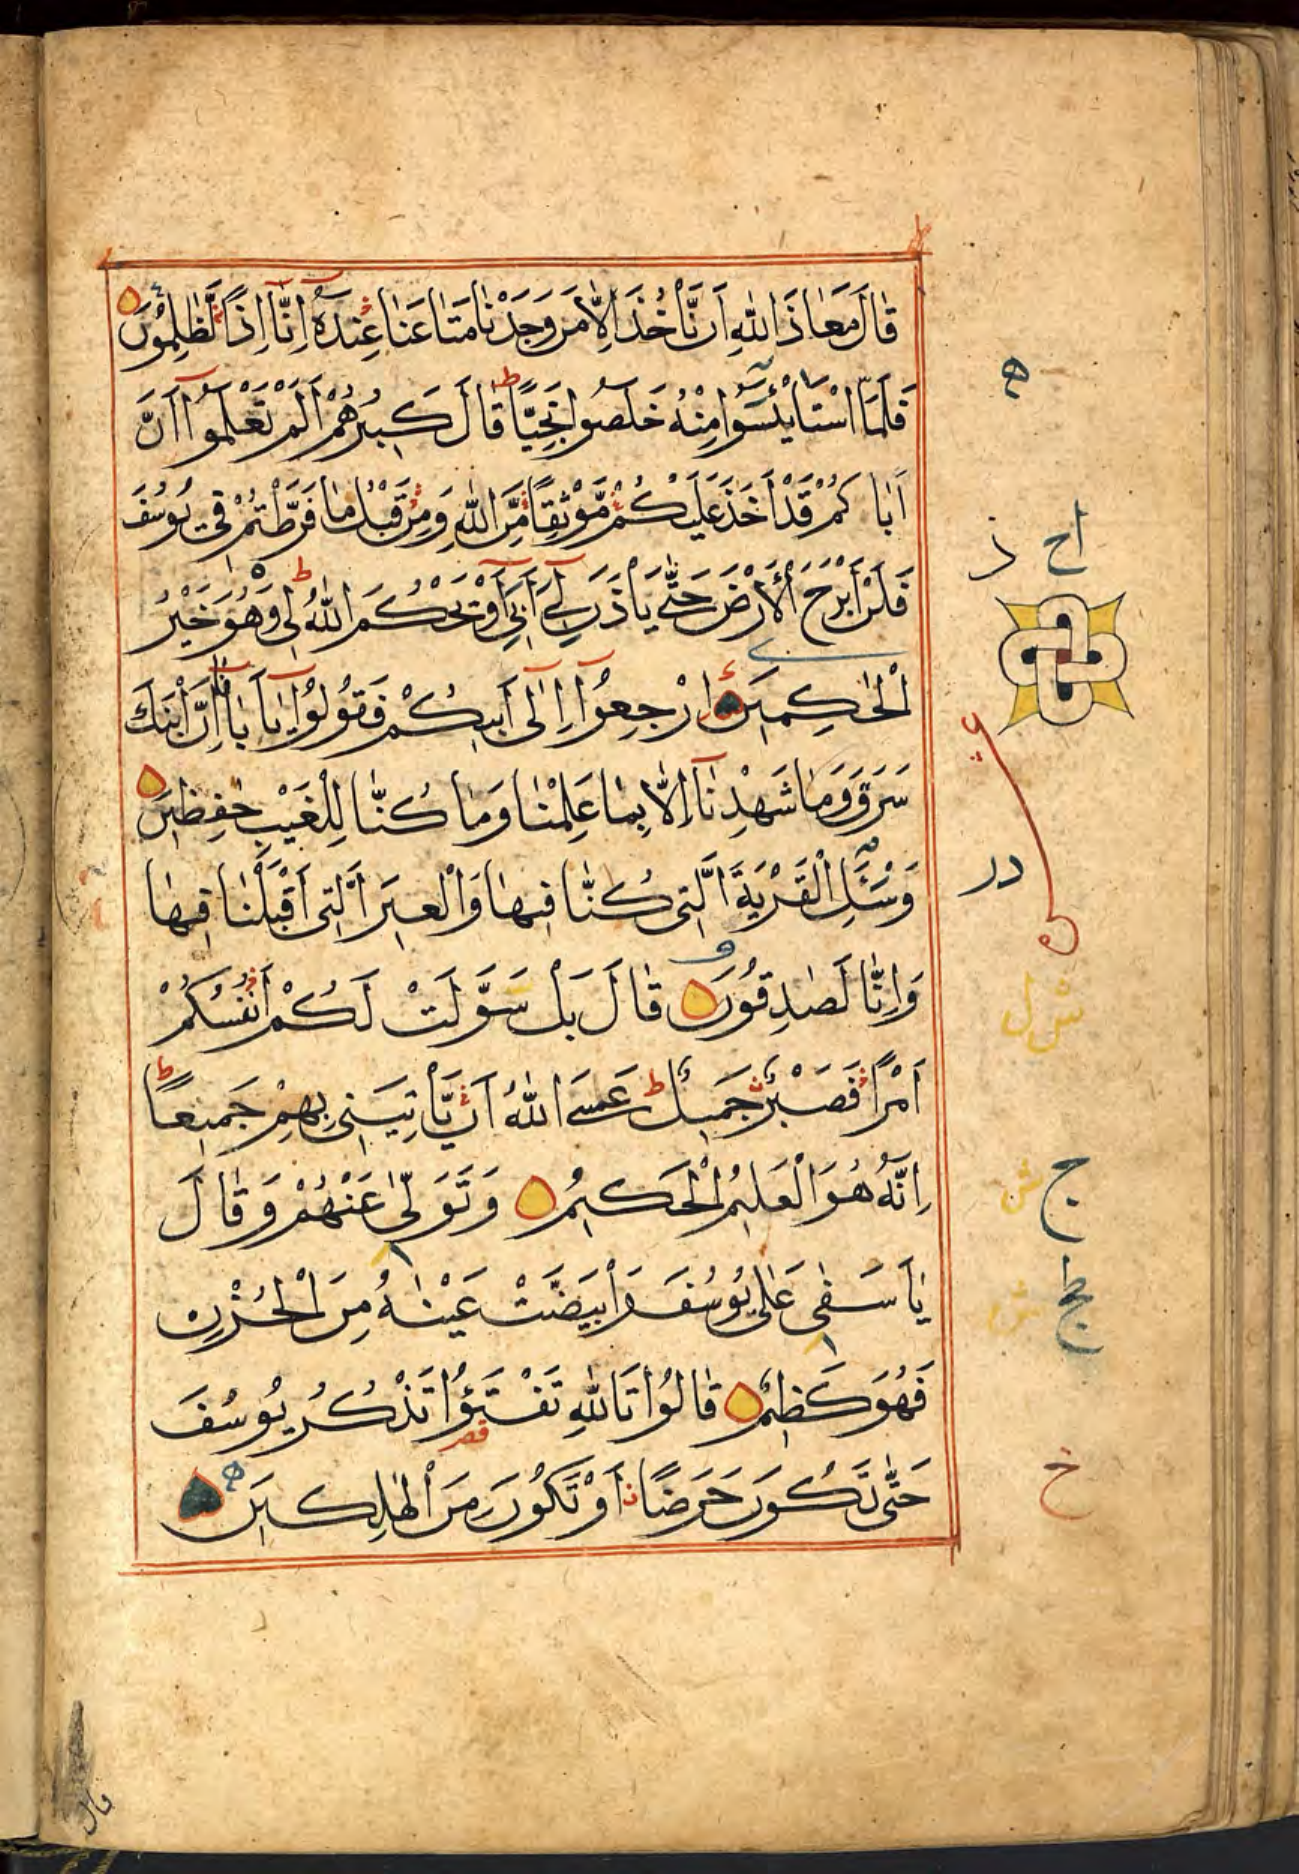 قَالَ مَعَاذَ اللّٰهِ اَنْ نَّاْخُذَ اِلَّا مَنْ وَجَدْنَا مَتَاعَنَا عِنْدَهٗ اِنَّا اِذًا لَّظٰلِمُوْنَ
فَلَمَّا اسْتَايْئَسُوْا مِنْهُ خَلَصُوا نَجِيًّا ط قَالَ كَبِيْرُهُمْ اَلَمْ تَعْلَمُوْا اَنَّ
اَبَاكُمْ قَدْ اَخَذَ عَلَيْكُمْ مَّوْثِقًا مِّنَ اللّٰهِ وَمِنْ قَبْلُ مَا فَرَّطْتُمْ فِيْ يُوْسُفَ
فَلَنْ اَبْرَحَ الْاَرْضَ حَتّٰى يَاْذَنَ لِيْ اَبِيْ اَوْ يَحْكُمَ اللّٰهُ لِيْ ط وَهُوَ خَيْرُ
الْحٰكِمِيْنَ اِرْجِعُوْا اِلٰى اَبِيْكُمْ فَقُوْلُوْا يَا اَبَانَا اِنَّ ابْنَكَ
سَرَقَ وَمَا شَهِدْنَا اِلَّا بِمَا عَلِمْنَا وَمَا كُنَّا لِلْغَيْبِ حٰفِظِيْنَ
وَسْئَلِ الْقَرْيَةَ الَّتِيْ كُنَّا فِيْهَا وَالْعِيْرَ الَّتِيْ اَقْبَلْنَا فِيْهَا
وَاِنَّا لَصٰدِقُوْنَ قَالَ بَلْ سَوَّلَتْ لَكُمْ اَنْفُسُكُمْ
اَمْرًا فَصَبْرٌ جَمِيْلٌ ط عَسَى اللّٰهُ اَنْ يَّاْتِيَنِيْ بِهِمْ جَمِيْعًا ط
اِنَّهٗ هُوَ الْعَلِيْمُ الْحَكِيْمُ وَتَوَلّٰى عَنْهُمْ وَقَالَ
يَا اَسَفٰى عَلٰى يُوْسُفَ وَابْيَضَّتْ عَيْنٰهُ مِنَ الْحُزْنِ
فَهُوَ كَظِيْمٌ قَالُوْا تَاللّٰهِ تَفْتَؤُا تَذْكُرُ يُوْسُفَ
حَتّٰى تَكُوْنَ حَرَضًا اَوْ تَكُوْنَ مِنَ الْهٰلِكِيْنَ
اح
ذ
در
ش ل
ج
ش
خ
قال